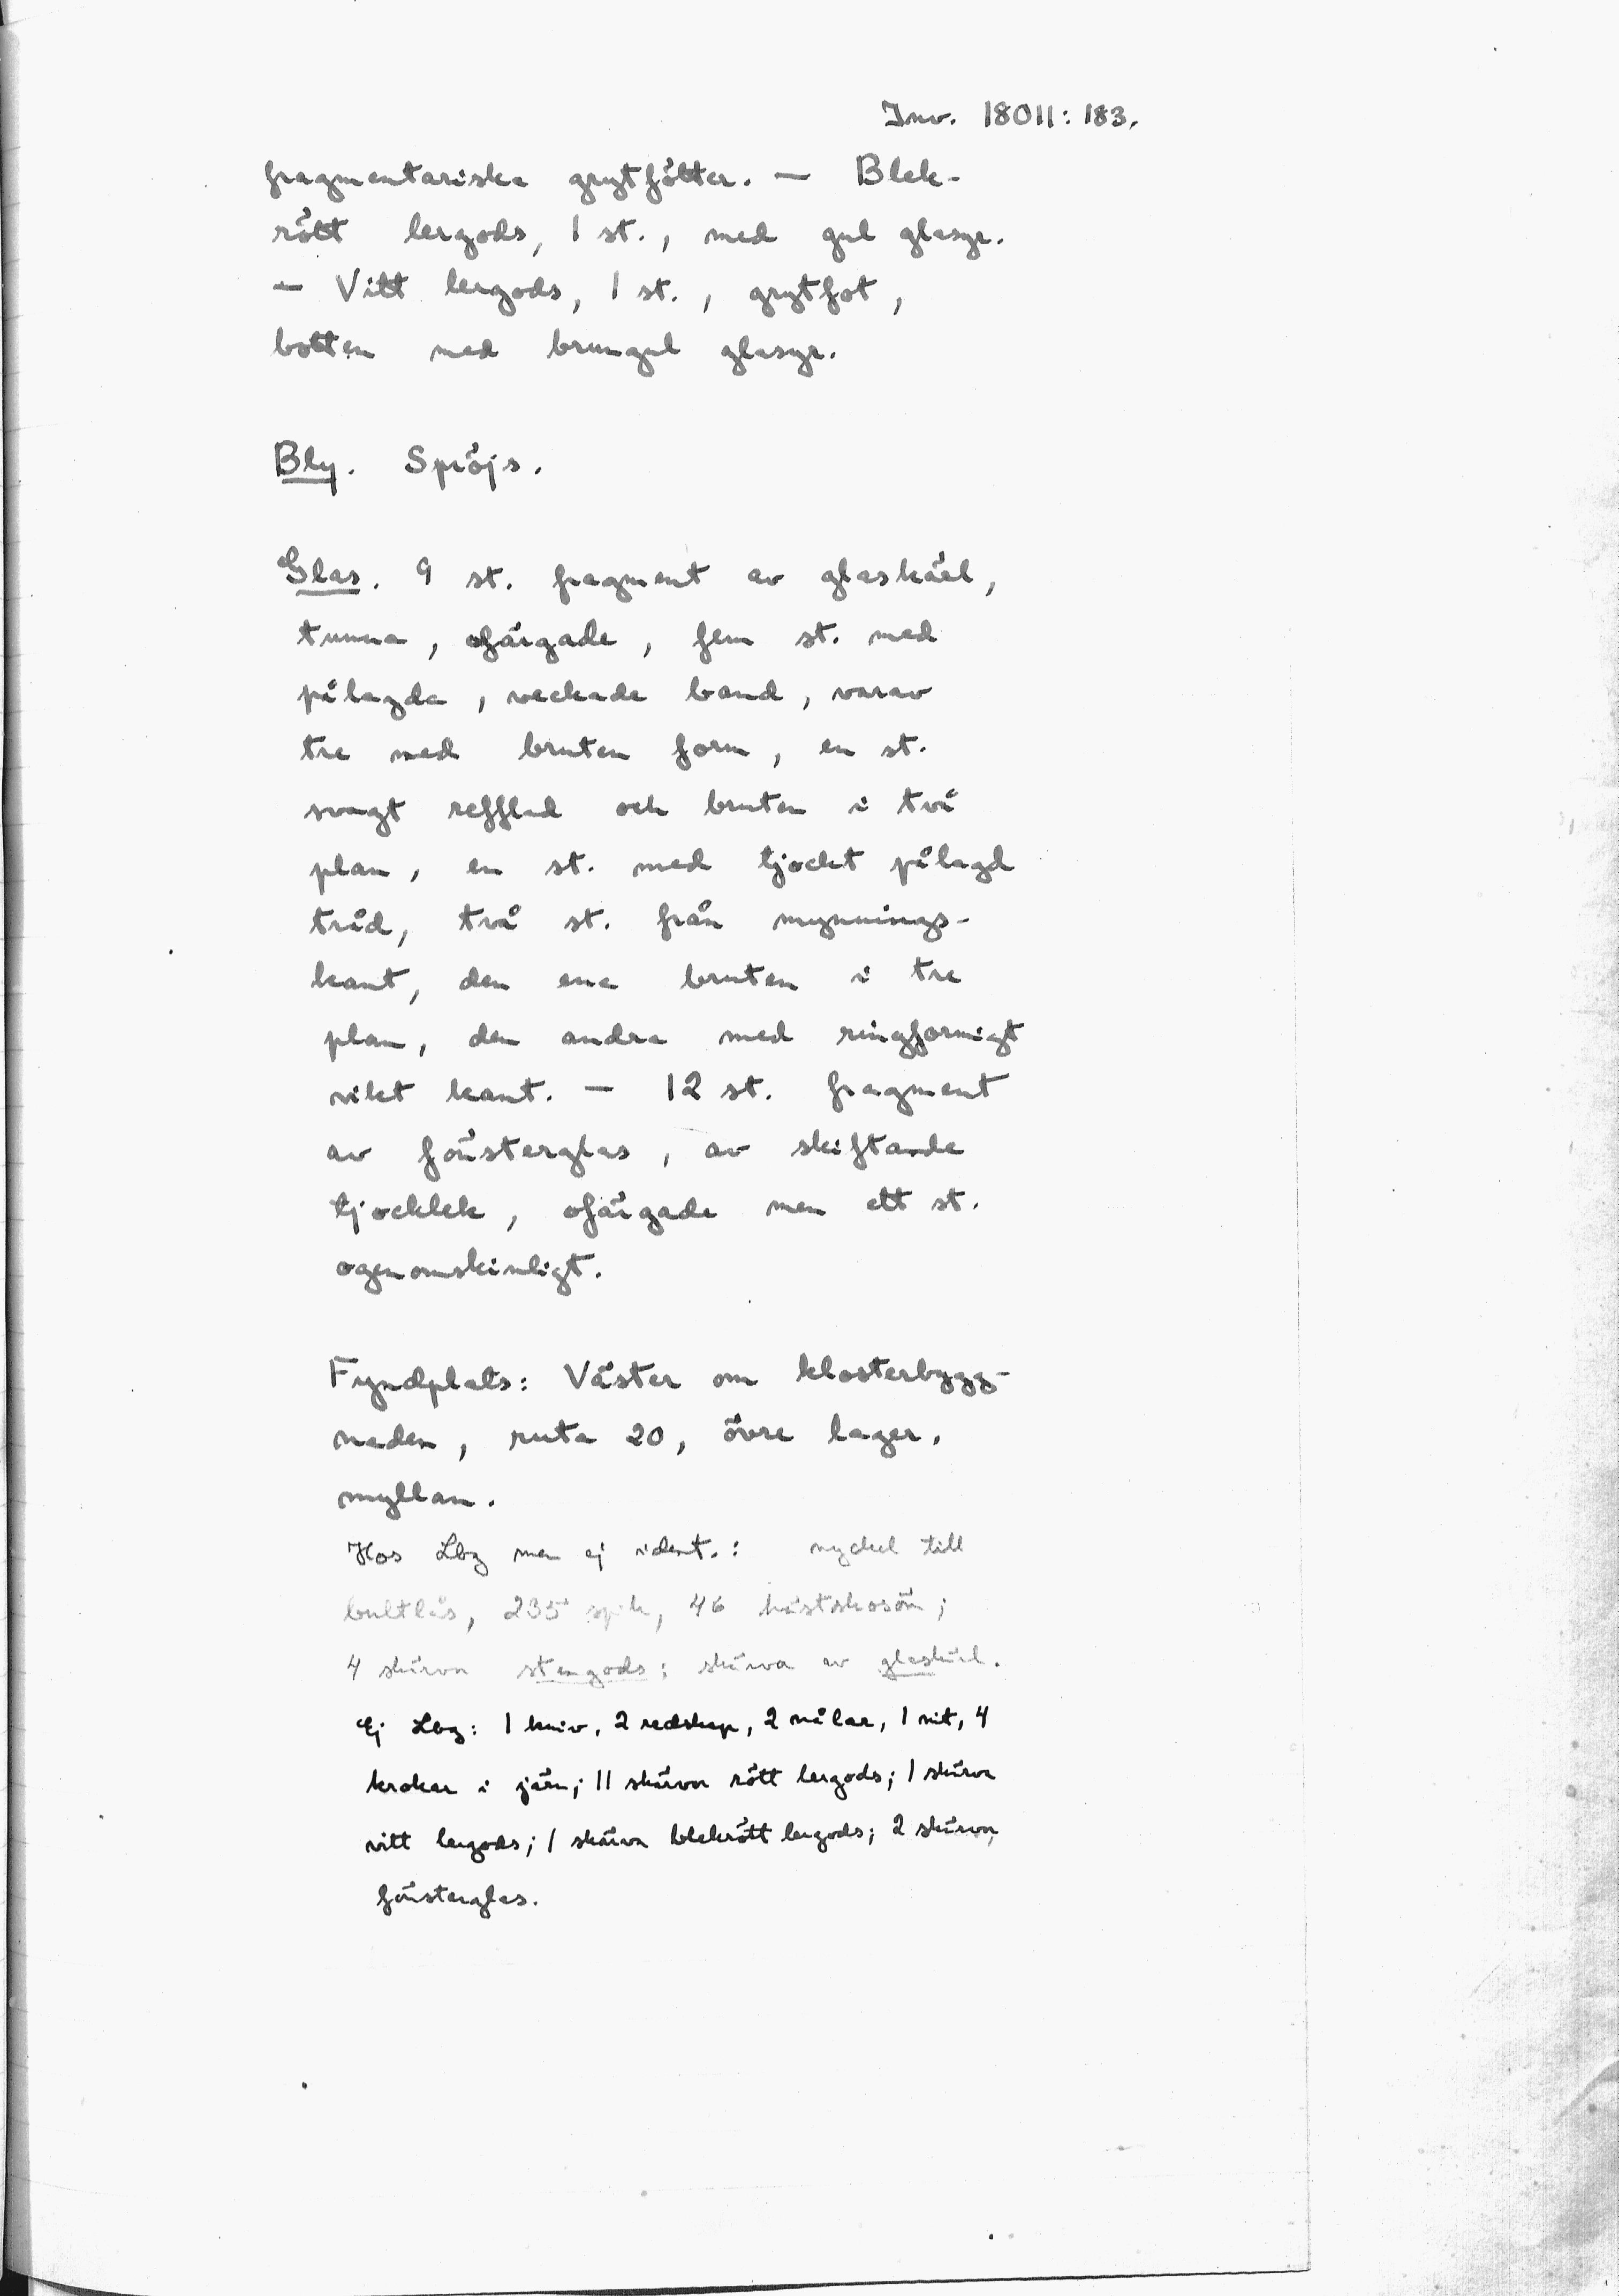 Inv. 18011:183.
fragmentariska grytfötter. — Blek-
rött lergods, 1 st., med gul glasyr.
— Vitt lergods, 1 st., grytfot,
botten med brungul glasyr.
Bly. Spröjs.
Glas. 9 st. fragment av glaskärl,
tunna, ofärgade, fem st. med
pålagda, veckade band, varav
tre med bruten form, en st.
svagt refflad och bruten i två
plan, en st. med tjockt pålagd
tråd, två st. från mynnings-
kant, den ena bruten i tre
plan, den andra med ringformigt
vikt kant. — 12 st. fragment
av fönsterglas, av skiftande
tjocklek, ofärgade men ett st.
ogenomskinligt.
Fyndplats: Väster om klosterbygg-
naden, ruta 20, övre lager,
myllan.
Hos Lbg men ej ident.: nyckel till
bultlås, 235 spik, 46 hästskosöm;
4 skärvor stengods; skärva av glaskärl.
Ej Lbg: 1 kniv, 2 redskap, 2 nålar, 1 nit, 4
krokar i järn; 11 skärvor rött lergods; 1 skärva
vitt lergods; 1 skärva blekrött lergods; 2 skärvor
fönsterglas.